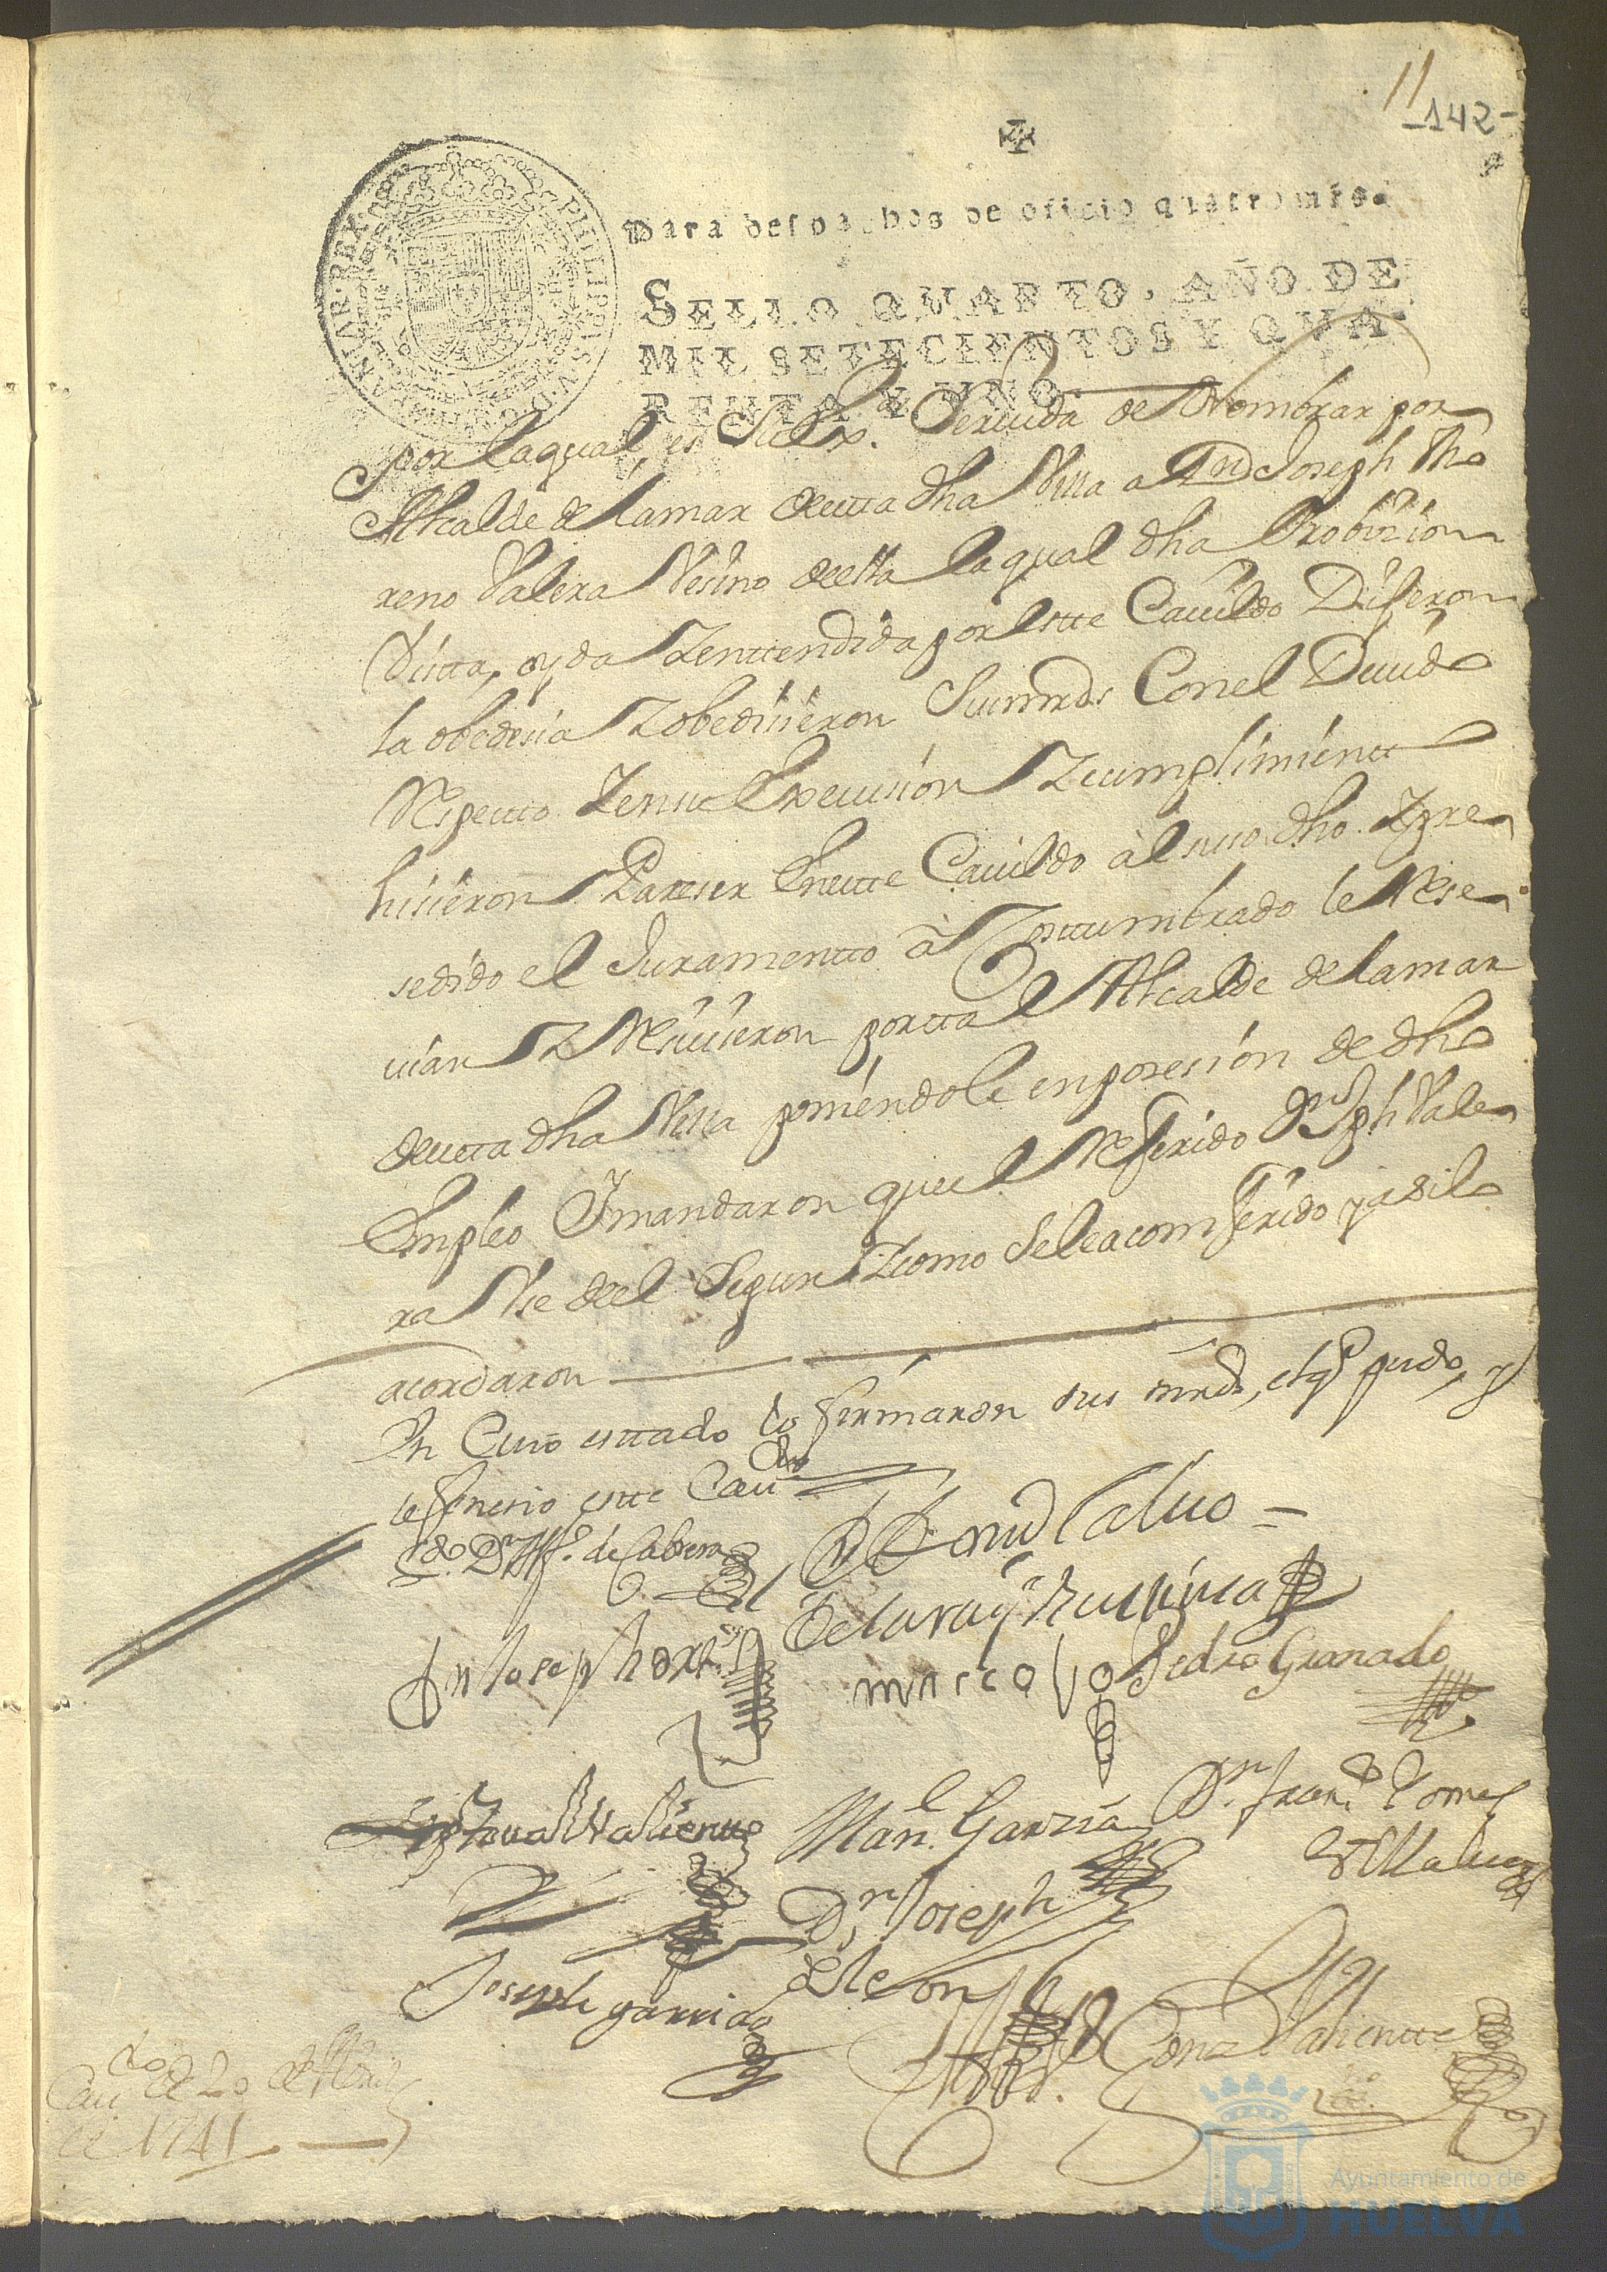 11
142
PHILIPPUS V D G HISPANIAR REX
Para despachos de oficio quatro mrs.
SELLO QVARTO, AÑO DE
MIL SETECIENTOS Y QVA-
RENTA Y VNO.
por la qual es Su Exᵃ. Servida de Nombrar por
Alcalde de la mar de esta dha Villa a Dn Joseph Mo
reno Valera Vesino de ella la qual dha Probizion
vista, oyda Y enttendida por Este Cavildo Dijeron
la obedesia Y obedisieron Sus mrds Con el Devido
Respecto Y en su Execusion Y cumplimientto
hisieron Pareser En este Cavildo àl suso dho Y pre
sedido el Juramentto àcostumbrado le Rese
vian Y Resivieron por tal Alcalde de la mar
de esta dha Villa poniendole en posesion de dho
Empleo Y mandaron que el Referido Dn Jph Vale
ra Use de el Segun Y como Se le a comferido y asi lo
acordaron
En Cuio esttado lo firmaron sus mrds, el q pudo, y
se fenesio este Cavdo
Ldo Dn Alfo. de Cabrera
Dn Bernd Calvo
de la Va y
Dn Joseph
marcos
Pedro Granado
Christoval Valientte
Man. Garzia
Dn Franco Gomes
Dn Joseph
de Leon
Joseph garrido
Gonz Valientte
Cavdo de 20 de Abril
de 1741
Ayuntamiento de
HUELVA